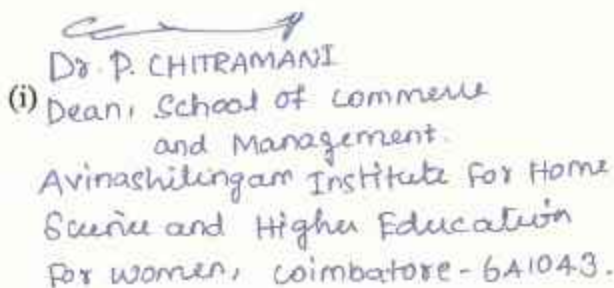 Dr. P. CHITRAMANI
(i) Dean, School of Commerce
and Management.
Avinashilingam Institute For Home
Science and Higher Education
For Women, Coimbatore - 641043.